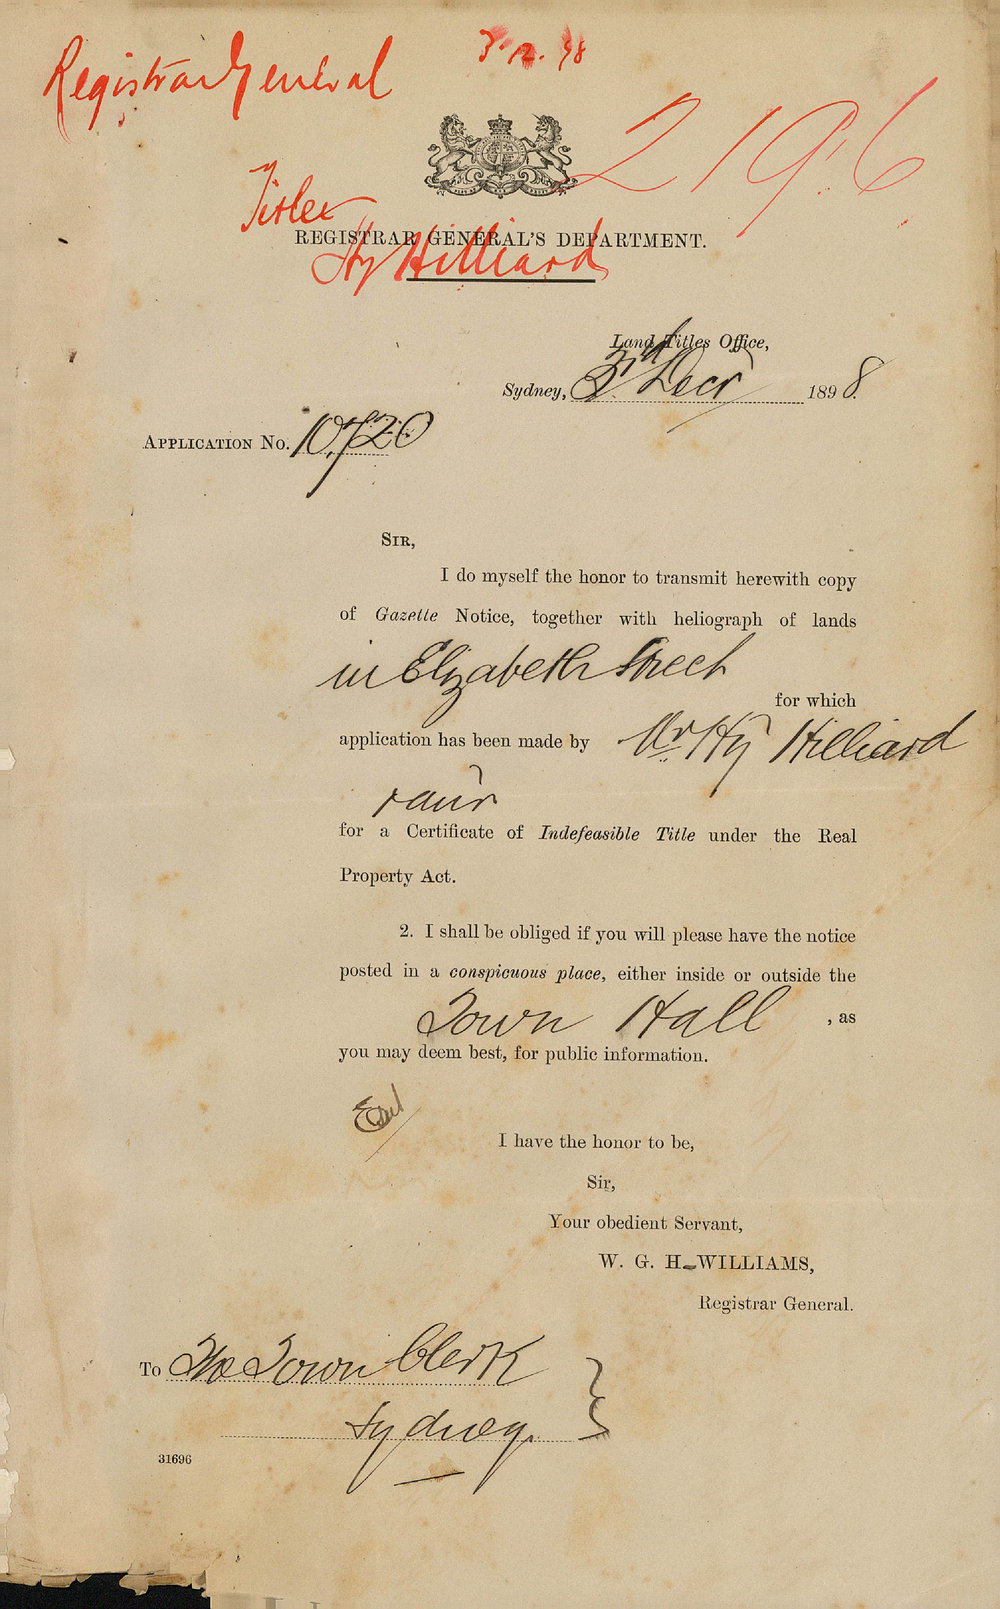 Registrar General
3.12.98
2196
Titles
Hy Hilliard
REGISTRAR GENERAL'S DEPARTMENT.
Land Titles Office,
Sydney, 3rd Decr 1898.
APPLICATION No. 10,720
SIR,
I do myself the honor to transmit herewith copy
of Gazette Notice, together with heliograph of lands
in Elizabeth Street
for which
application has been made by Mr. Hy Hilliard
for a Certificate of Indefeasible Title under the Real
Property Act.
2. I shall be obliged if you will please have the notice
posted in a conspicuous place, either inside or outside the
Town Hall , as
you may deem best, for public information.
I have the honor to be,
Sir,
Your obedient Servant,
W. G. H. WILLIAMS,
Registrar General.
To The Town Clerk
Sydney.
31696